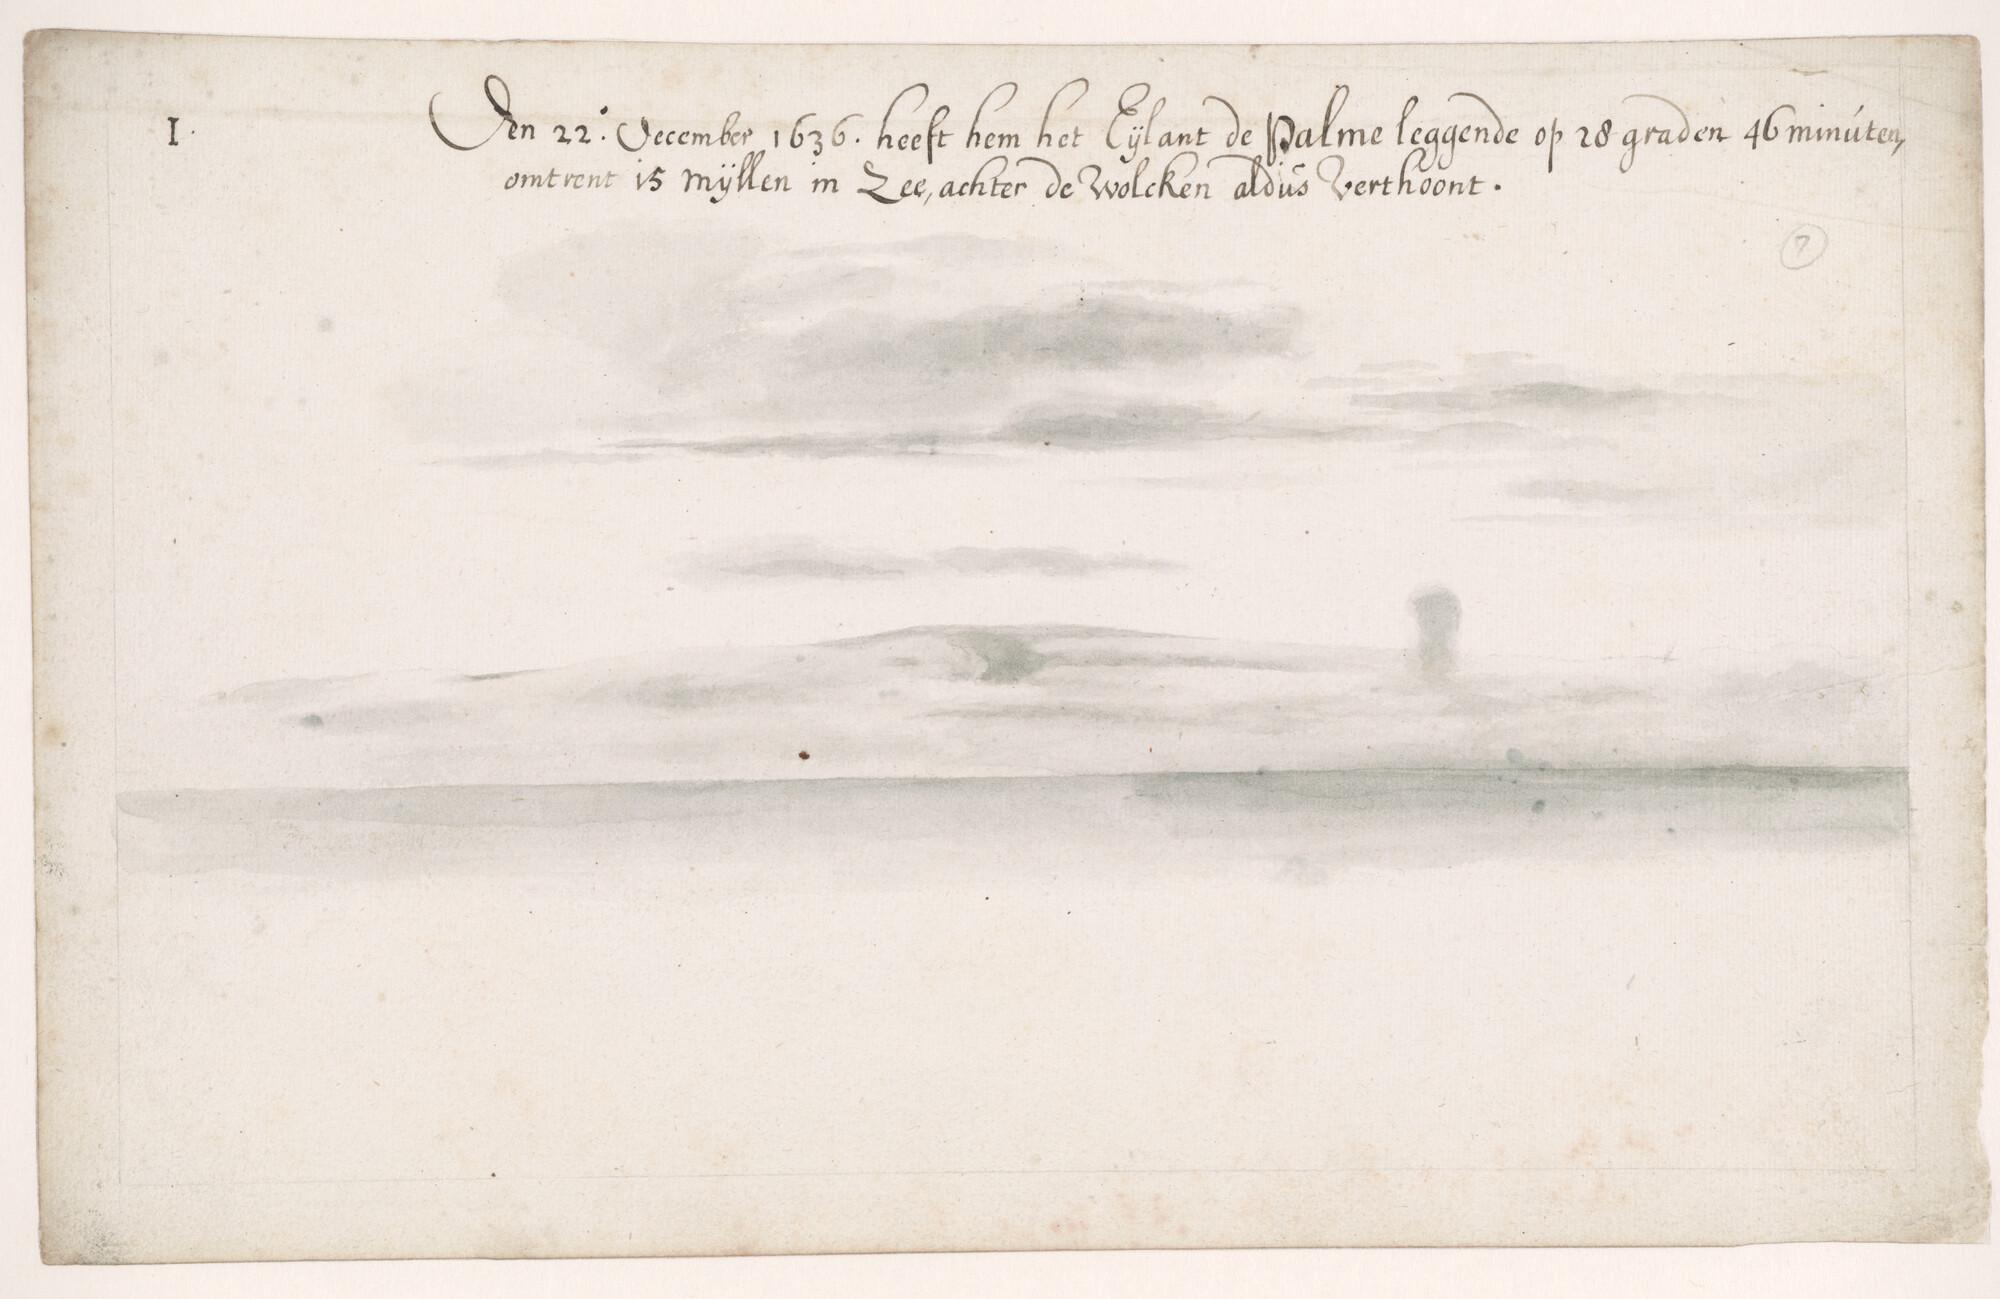 I.
Den 22. December 1636. heeft hem het Eÿlant de Palme leggende op 28 graden 46 minúten,
omtrent 15 Mÿllen in Zee, achter de Wolcken aldús Verthoont.
7